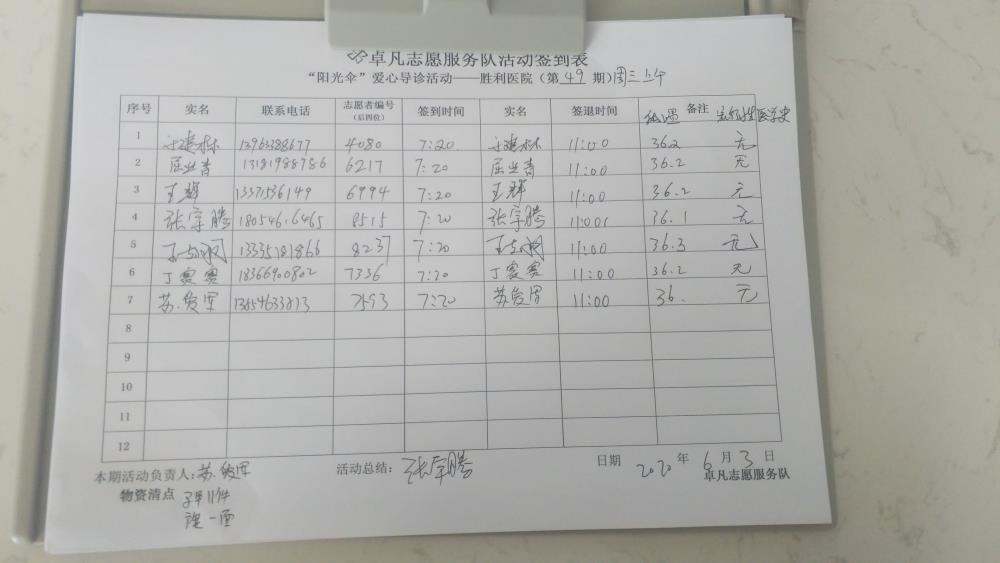 卓凡志愿服务队活动签到表
“阳光伞”爱心导诊活动——胜利医院(第 49 期)周三上午
序号 实名 联系电话 志愿者编号(后四位) 签到时间 实名 签退时间 备注 体温 医学史
1 13963388677 4080 7:20 11:00 36.2 无
2 屈业青 13181988786 6217 7:20 屈业青 11:00 36.2 无
3 王群 13371536149 6994 7:20 王群 11:00 36.2 无
4 张宗腾 180546.6465 8515 7:20 张宗腾 11:00 36.1 无
5 13335181866 8237 7:20 11:00 36.3 无
6 丁赛赛 18366900802 7336 7:20 丁赛赛 11:00 36.2 无
7 苏俊军 7593 7:20 苏俊军 11:00 36. 无
8
9
10
11
12
本期活动负责人:苏俊军 活动总结: 张宗腾 日期 2020 年 6 月 3 日
物资清点 11件 卓凡志愿服务队
一面